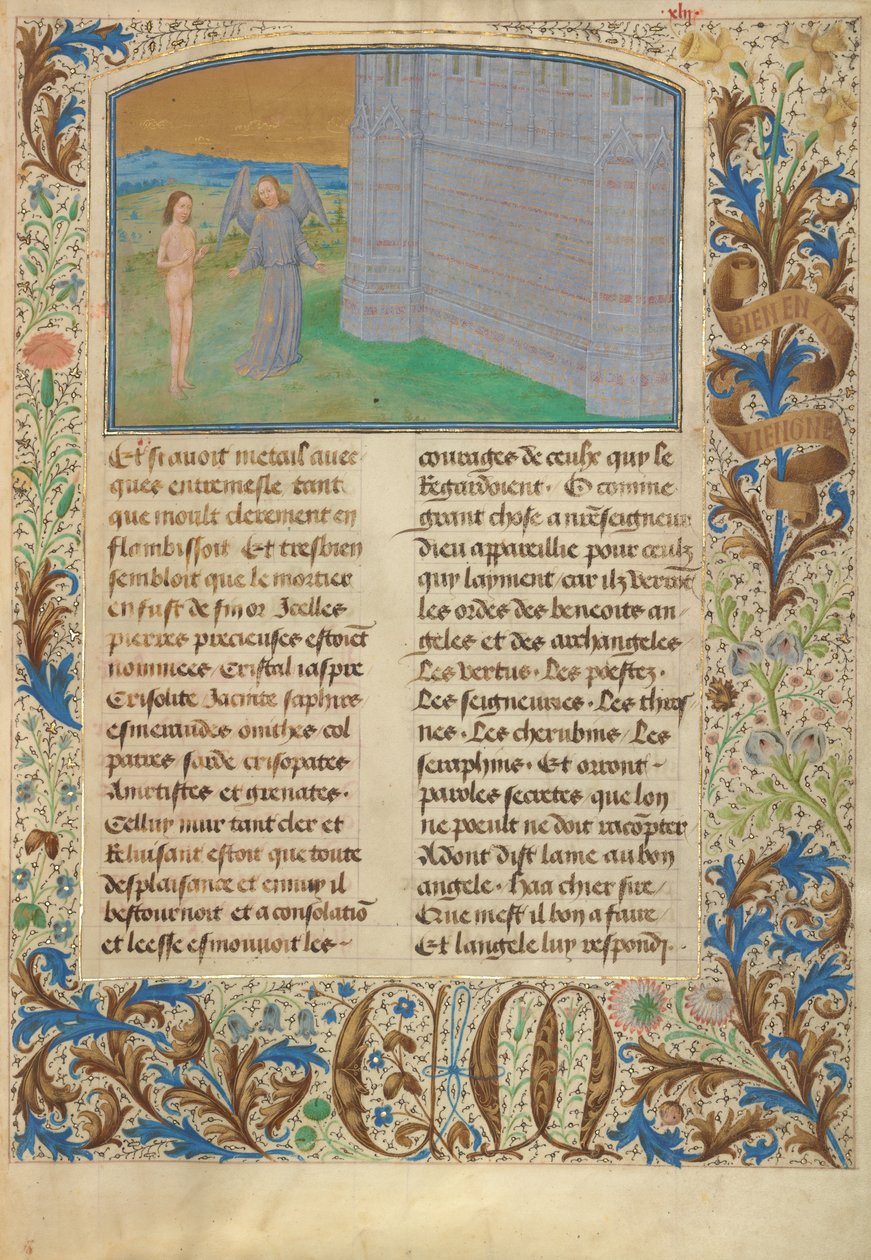 xlii.
Et si avoit metail avec-
ques entremesle tant
que moult clerement en
flambissoit Et tresbien
sembloit que le mortier
en fust de fin or Icelles
pierres precieuses estoiēt
nommees / Cristal iaspre
Crisolite Jacinte saphirs
esmeraudes onithes / col
patres sarde crisopates
Ametistes et grenates.
Celluy mur tant cler et
Reluisant estoit que toute
desplaisance et ennuy il
bestournoit et a consolatiō
et leesse esmouvoit les -
courages de ceulx quy le
Regardoient. O comme
grant chose a nr̄e seigneur
dieu appareillie pour ceulz
quy layment / car ilz verrōt
les ordes des benoits an-
geles et des archangeles
Les vertus. Les poestez.
Les seigneuries. Les thros
nes. Les cherubins / Les
seraphins. Et orront -
paroles secretes / que lon
ne poeult ne doit racōpter
Adont dist lame au bon
angele. haa chier sire /
Que mest il bon a faire
Et langele luy respondi.
BIEN EN A
VIENGNE
CM